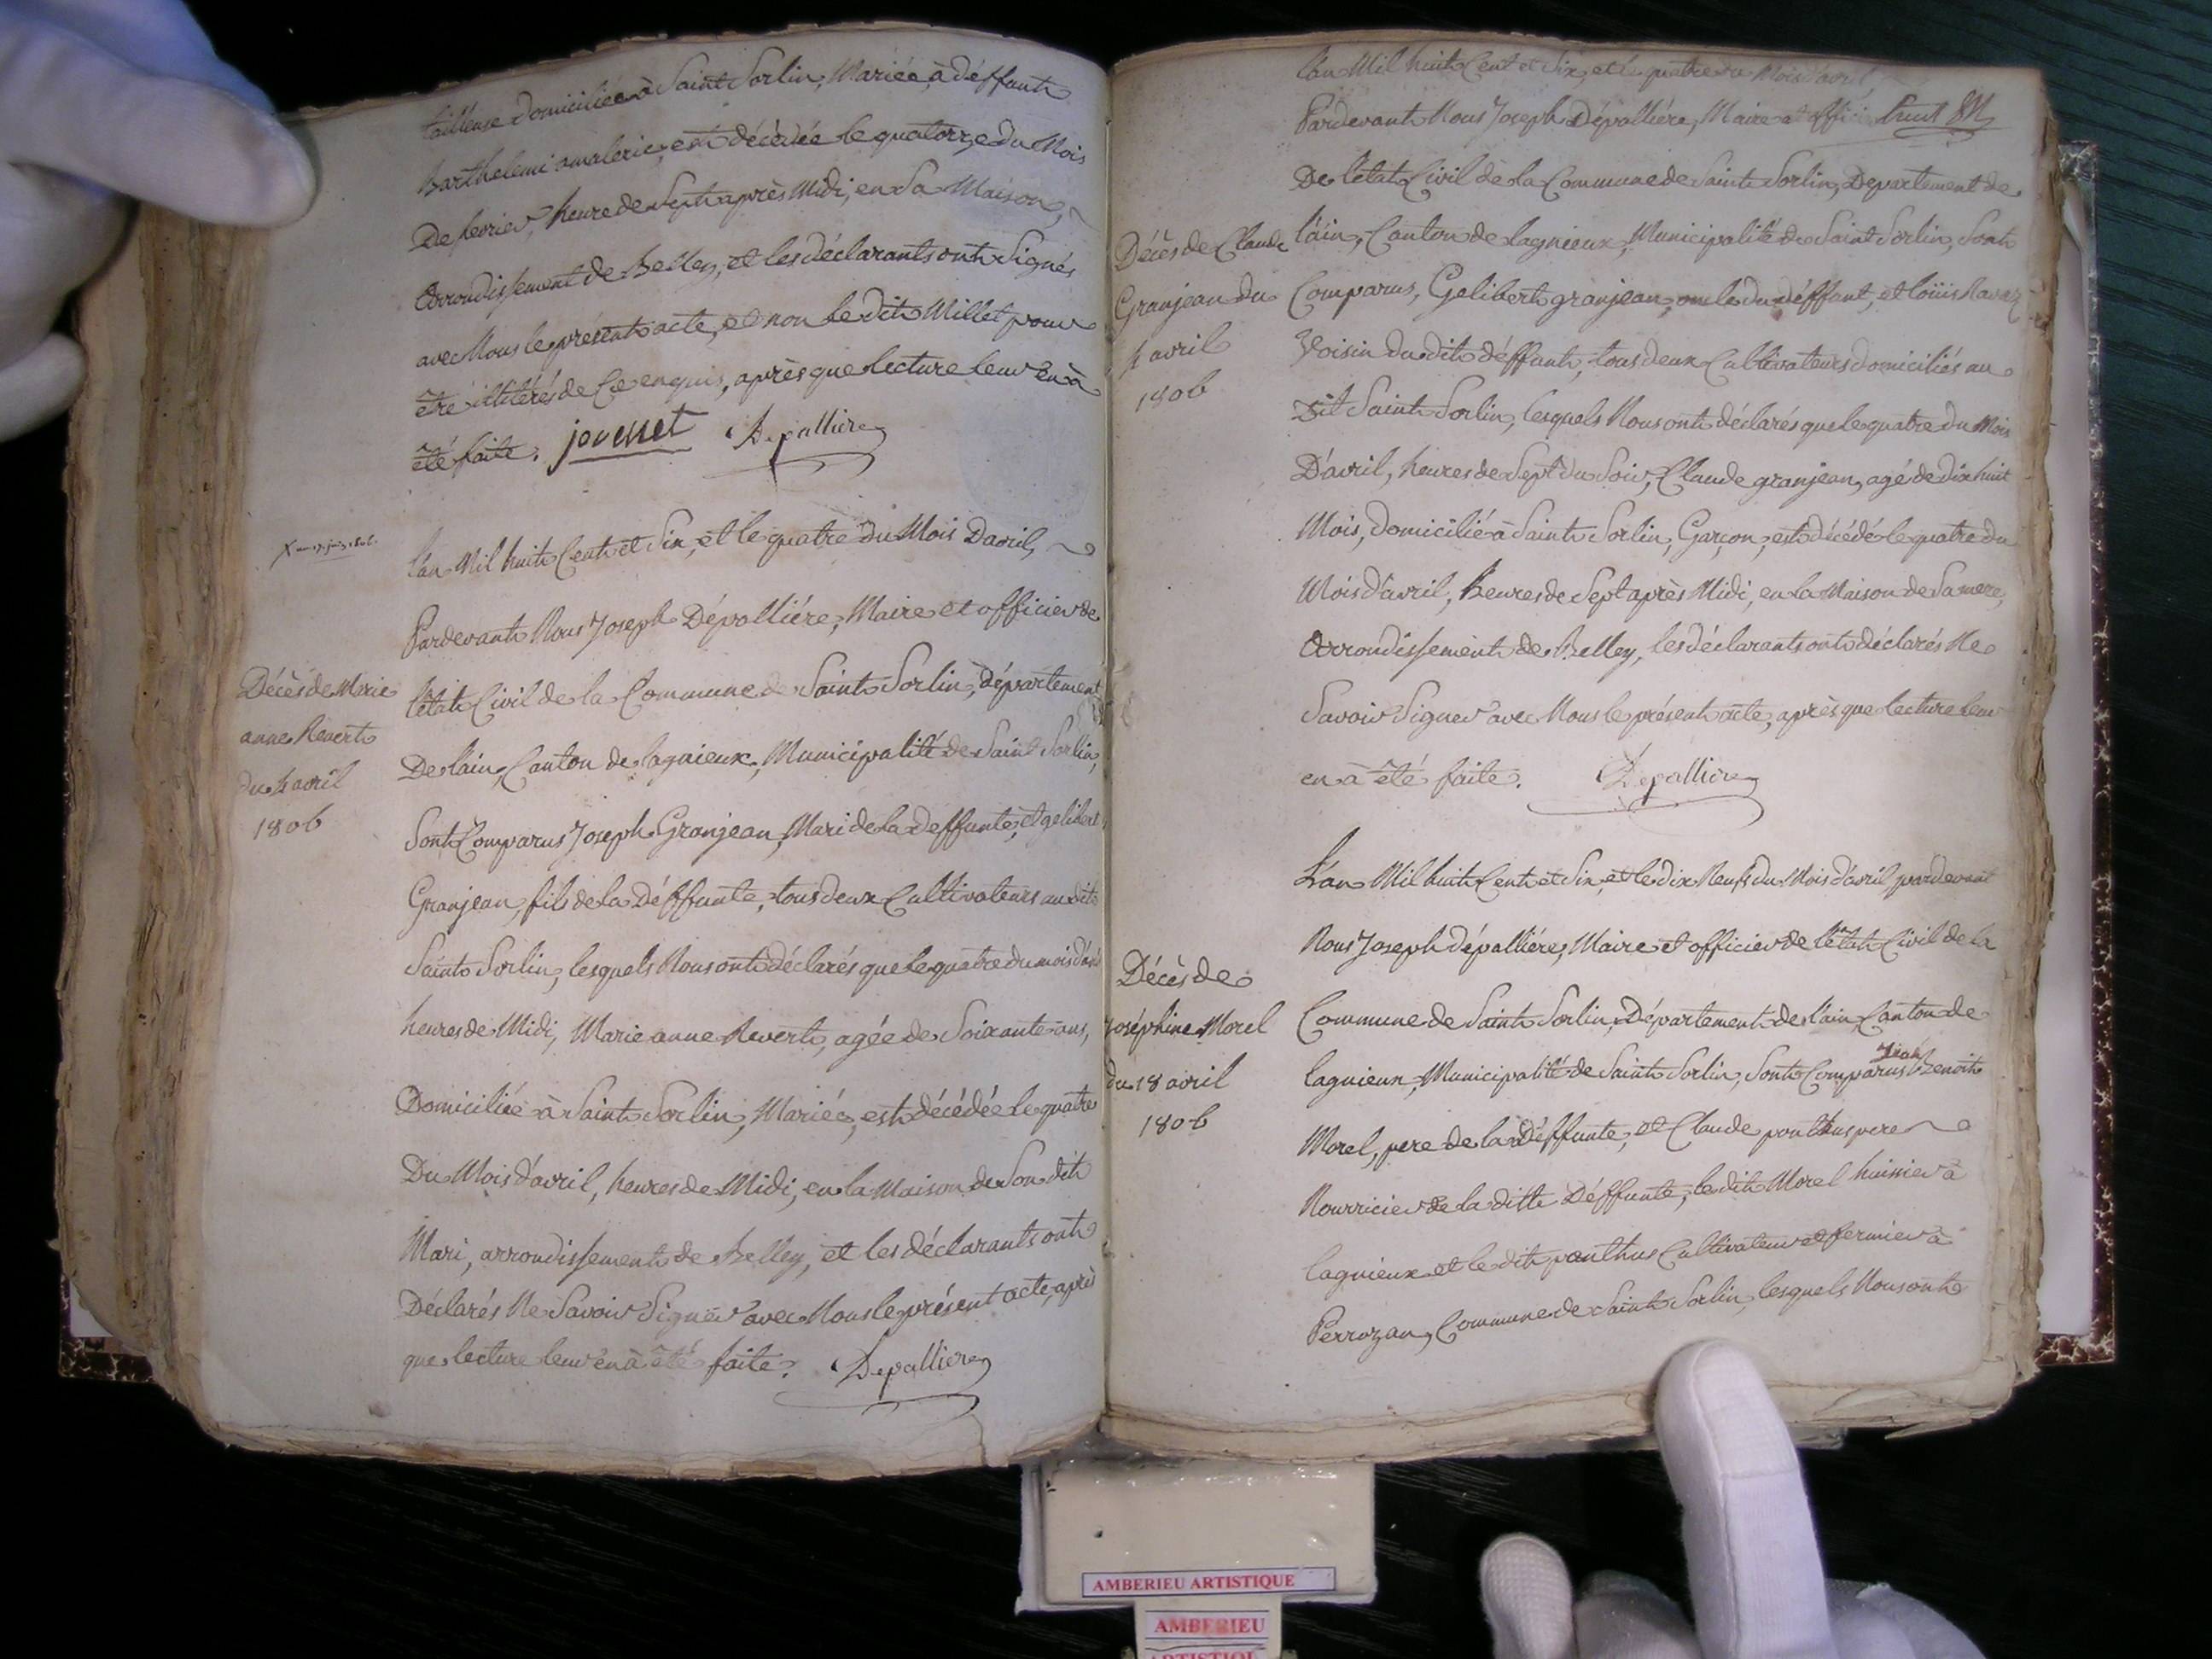 tailleuse domiciliée à Saint Sorlin, Mariée, à déffunt
Barthelemi amaleric, est décédée le quatorze du Mois
De fevrier, heure de Sept après Midi, en Sa Maison,
Arrondissement de Belley, et les déclarants ont Signés
avec Nous le présent acte, et non le dit Millet pour
être illitérés de Ce enquis, après que lecture leur en à
été faite. jouenet Depalliere
X
Décès de Marie
anne Revert
du 4 avril
1806
l'an Mil huit Cent et Six, et le quatre du Mois D'avril,
Pardevant Nous Joseph Dépalliére, Maire et officier de
l'état Civil de la Commune de Saint Sorlin, département
De l'ain, Canton de lagnieux, Municipalité de Saint Sorlin,
Sont Comparus Joseph Granjean, Mari de la deffunte, et gelibert
Granjean, fils de la Déffunte, tous deux Cultivateurs au dit
Saint Sorlin, lesquels Nous ont déclarés que le quatre du mois d'avril
heures de Midi, Marie anne Revert, agée de Soixante ans,
Domiciliée à Saint Sorlin, Mariée, est décédée le quatre
Du Mois d'avril, heures de Midi, en la Maison de Son dit
Mari, arrondissement de Belley, et les déclarants ont
Déclarés Ne Savoir Signer avec Nous le présent acte, après
que lecture leur en à été faite. Depalliere
l'an Mil huit Cent et Six, et le quatre du Mois d'avril
Pardevant Nous Joseph Dépalliére, Maire et offici huit
De l'état Civil de la Commune de Saint Sorlin, Departement de
Décès de Claude
Granjean du
4 avril
1806
l'ain, Canton de lagnieux, Municipalité de Saint Sorlin, Sont
Comparus, Gelibert granjean, oncle du déffunt, et loüis Ravaz
Voisin du dit déffunt, tous deux Cultivateurs domiciliés au
Dit Saint Sorlin, lesquels Nous ont déclarés que le quatre du Mois
D'avril, heures de Sept du Soir, Claude granjean, agé de dix huit
Mois, domicilié à Saint Sorlin, Garçon, est décédé le quatre du
Mois d'avril, heures de Sept après Midi, en la Maison de Sa mere,
Arrondissement de Belley, les déclarants ont déclarés Ne
Savoir Signer avec Nous le présent acte, après que lecture leur
en à été faite. Depalliere
L'an Mil huit Cent et Six, et le dix Neuf du Mois d'avril pardevant
Nous Joseph dépalliére, Maire et officier de l'état Civil de la
Décès de
Joséphine Morel
du 18 avril
1806
Commune de Saint Sorlin, Département de l'ain, Canton de
lagnieux, Municipalité de Saint Sorlin, Sont Comparus Benoit
Morel, pere de la déffunte, et Claude ponthus pere
Nourricier de la ditte Déffunte, le dit Morel huissier à
lagnieux et le dit ponthus Cultivateur et fermier à
Perrozan, Commune de Saint Sorlin, lesquels Nous ont
AMBERIEU ARTISTIQUE
AMBERIEU
ARTISTIQUE